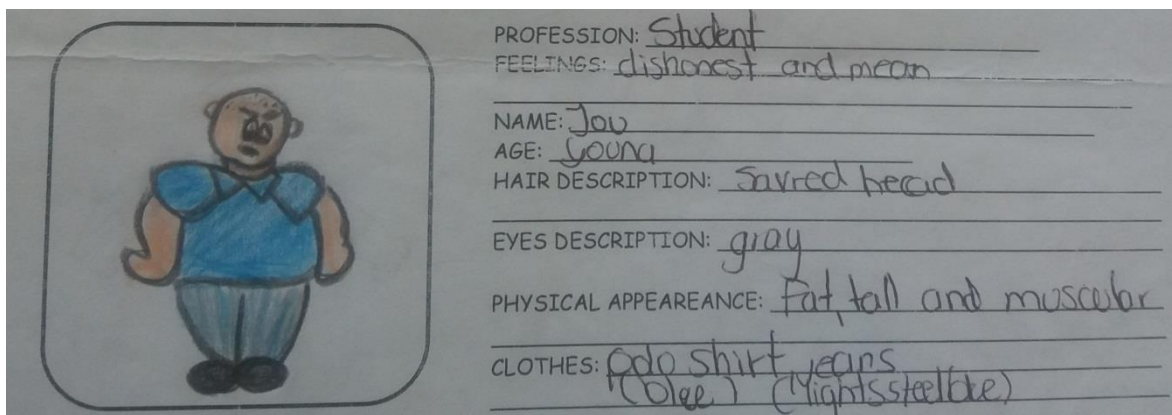 PROFESSION: Student
FEELINGS: dishonest and mean
NAME: Jou
AGE: young
HAIR DESCRIPTION: Savred head
EYES DESCRIPTION: gray
PHYSICAL APPEAREANCE: Fat, tall and muscular
CLOTHES: polo shirt, yeans